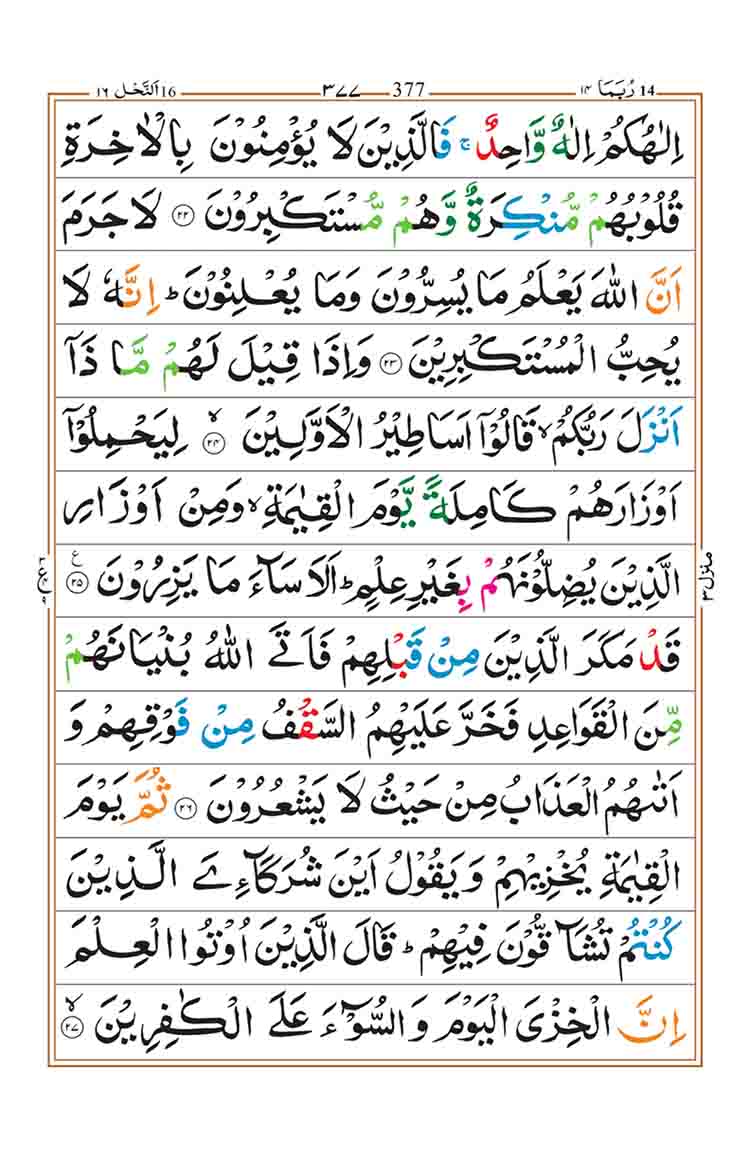 14 رُبَمَا ١٤ 377 ٣٧٧ 16 اَلنَّحْل ١٦
اِلٰهُكُمْ اِلٰهٌ وَّاحِدٌ ۚ فَالَّذِيْنَ لَا يُؤْمِنُوْنَ بِالْاٰخِرَةِ
قُلُوْبُهُمْ مُّنْكِرَةٌ وَّهُمْ مُّسْتَكْبِرُوْنَ ۝٢٢ لَا جَرَمَ
اَنَّ اللّٰهَ يَعْلَمُ مَا يُسِرُّوْنَ وَمَا يُعْلِنُوْنَ ؕ اِنَّهٗ لَا
يُحِبُّ الْمُسْتَكْبِرِيْنَ ۝٢٣ وَاِذَا قِيْلَ لَهُمْ مَّا ذَاۤ
اَنْزَلَ رَبُّكُمْ ۙ قَالُوْۤا اَسَاطِيْرُ الْاَوَّلِيْنَ ۙ۝٢٤ لِيَحْمِلُوْۤا
اَوْزَارَهُمْ كَامِلَةً يَّوْمَ الْقِيٰمَةِ ۙ وَمِنْ اَوْزَارِ
الَّذِيْنَ يُضِلُّوْنَهُمْ بِغَيْرِ عِلْمٍ ؕ اَلَا سَآءَ مَا يَزِرُوْنَ ۝٢٥ ع
منزل ٣
قَدْ مَكَرَ الَّذِيْنَ مِنْ قَبْلِهِمْ فَاَتَى اللّٰهُ بُنْيَانَهُمْ
مِّنَ الْقَوَاعِدِ فَخَرَّ عَلَيْهِمُ السَّقْفُ مِنْ فَوْقِهِمْ وَ
اَتٰىهُمُ الْعَذَابُ مِنْ حَيْثُ لَا يَشْعُرُوْنَ ۝٢٦ ثُمَّ يَوْمَ
الْقِيٰمَةِ يُخْزِيْهِمْ وَيَقُوْلُ اَيْنَ شُرَكَآءِيَ الَّذِيْنَ
كُنْتُمْ تُشَآقُّوْنَ فِيْهِمْ ؕ قَالَ الَّذِيْنَ اُوْتُوا الْعِلْمَ
اِنَّ الْخِزْيَ الْيَوْمَ وَالسُّوْٓءَ عَلَى الْكٰفِرِيْنَ ۙ۝٢٧